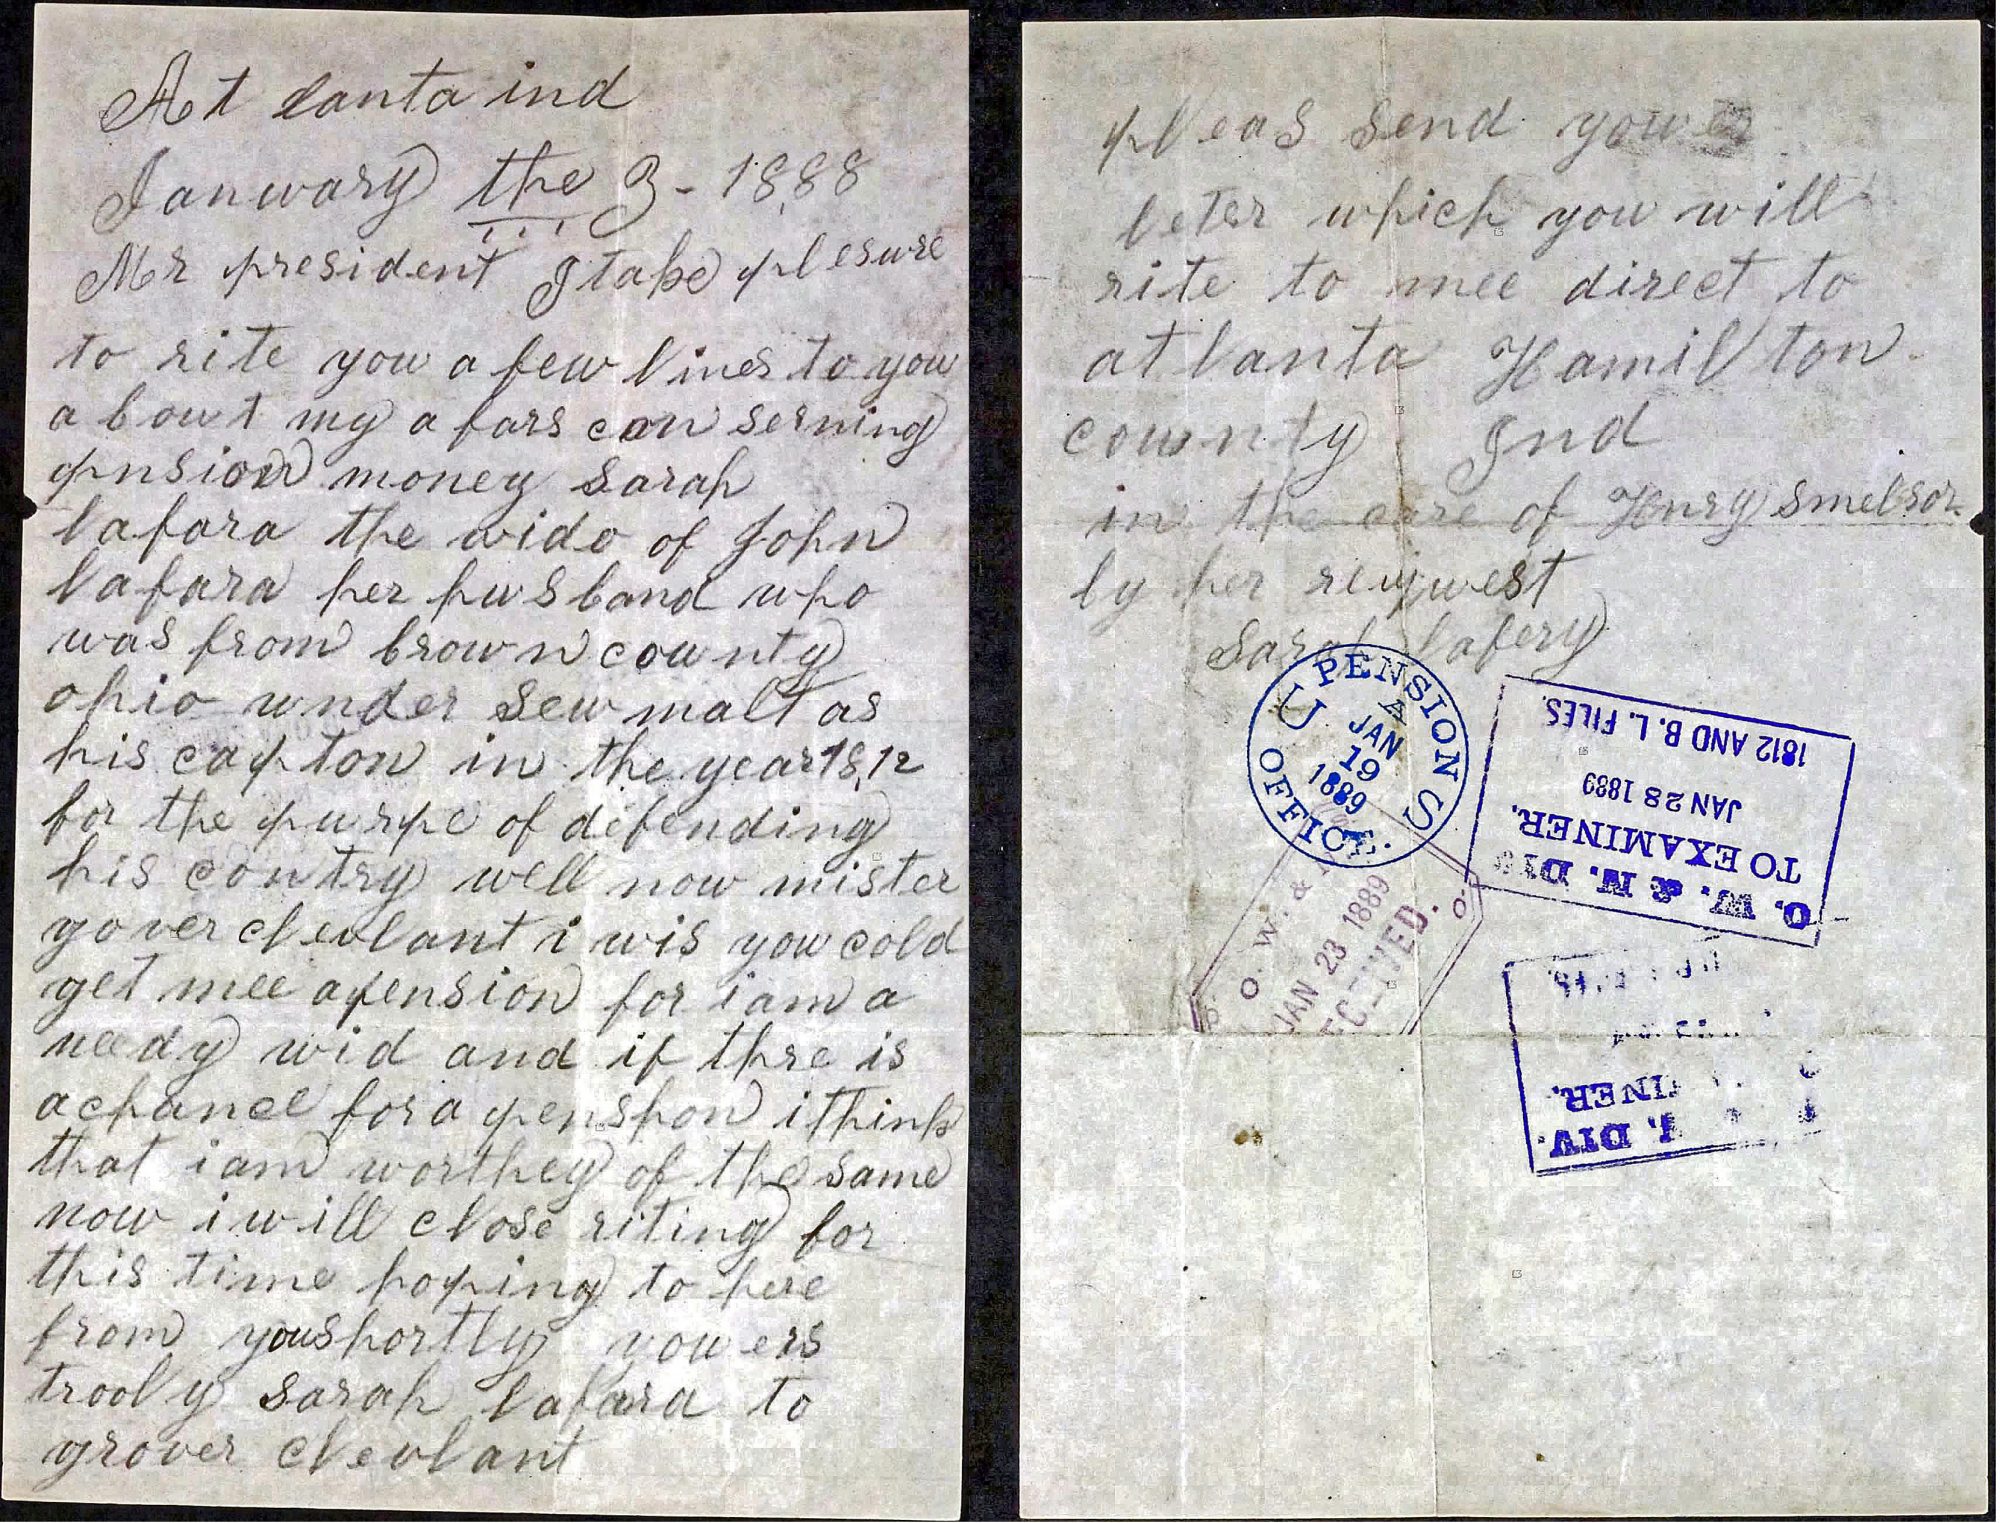 At lanta ind
Januwary the 3 - 1888
Mr president I take plesure
to rite you a few lines to you
a bout my a fars con serning
pnsion money Sarah
lafara the wido of John
lafara her husband who
was from brown county
ohio under Sew malt as
his capton in the year 1812
for the purpe of difending
his contry well now mister
gover clevlant i wis you cold
get mee a pension for i am a
needy wid and if thre is
a chance for a penshon i think
that i am worthey of the same
now i will close riting for
this time hoping to here
from you shortly yowers
trooly Sarah lafara to
grover clevlant
pleas send yower
leter which you will
rite to mee direct to
atlanta Hamilton
county Ind
in the care of Henry Smelsor
by her reqwest
Sarah lafery
U S PENSION OFFICE.
JAN
19
1889
O. W. &
JAN 23 1889
O. W. & N. DIV
TO EXAMINER.
JAN 28 1889
1812 AND B. L. FILES.
DIV.